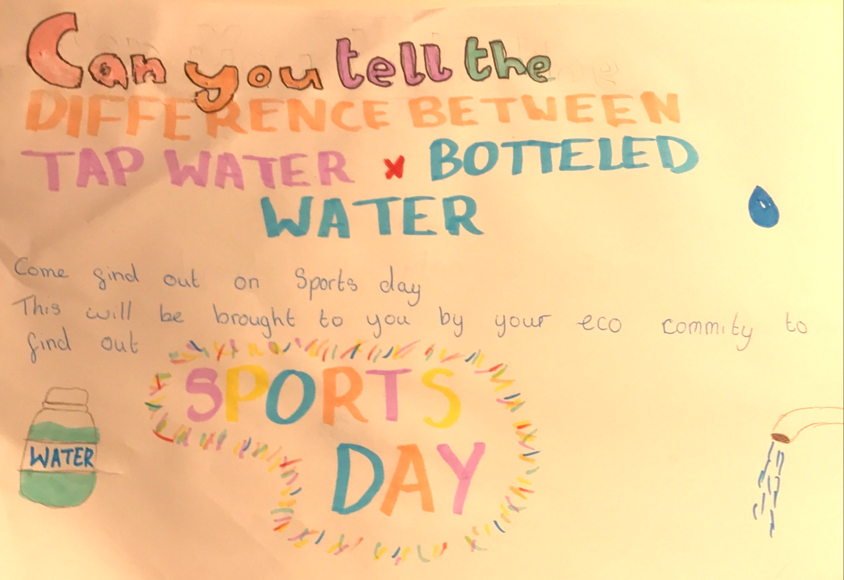 Can you tell the
DIFFERENCE BETWEEN
TAP WATER x BOTTELED
WATER
Come find out on Sports day
This will be brought to you by your eco commity to
find out
SPORTS
DAY
WATER